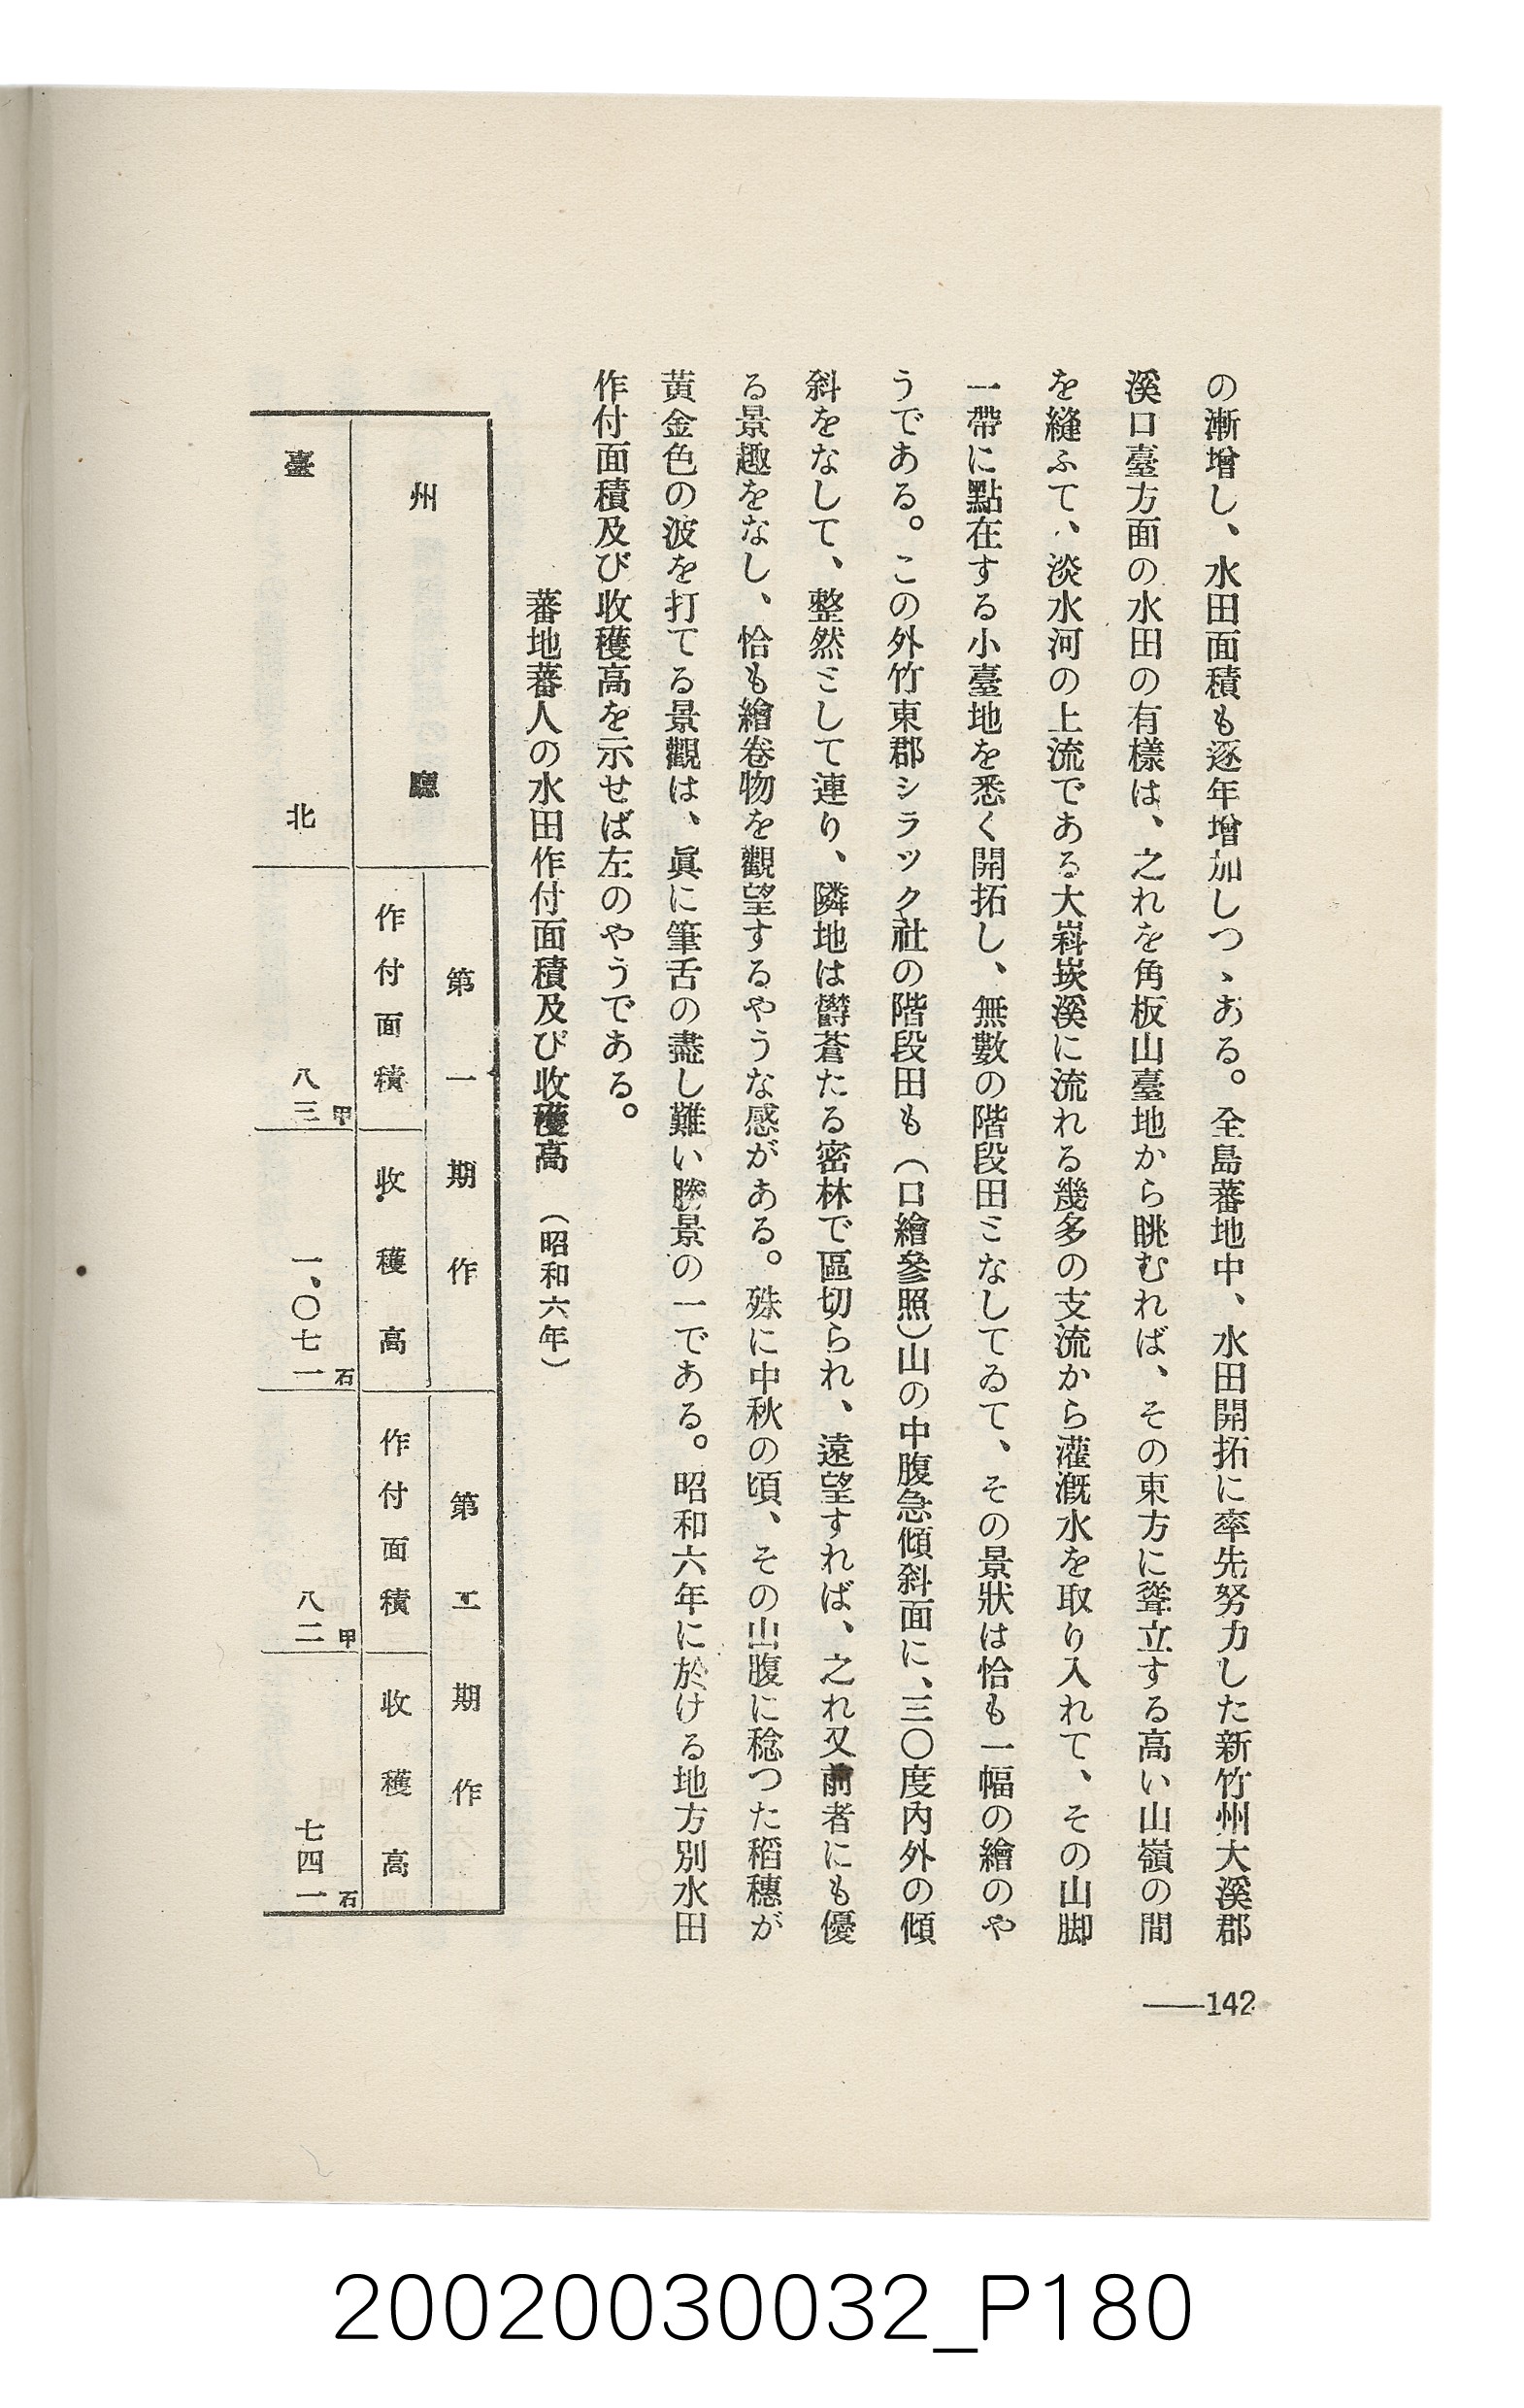 の漸增し、水田面積も逐年增加しつゝある。全島蕃地中、水田開拓に率先努力した新竹州大溪郡
溪口臺方面の水田の有樣は、之れを角板山臺地から眺むれば、その東方に聳立する高い山嶺の間
を縫ふて、淡水河の上流である大嵙崁溪に流れる幾多の支流から灌漑水を取り入れて、その山脚
一帶に點在する小臺地を悉く開拓し、無數の階段田ミなしてゐて、その景狀は恰も一幅の繪のや
うである。この外竹東郡シラック社の階段田も（口繪參照）山の中腹急傾斜面に、三〇度內外の傾
斜をなして、整然ミして連り、隣地は欝蒼たる密林で區切られ、遠望すれば、之れ又前者にも優
る景趣をなし、恰も繪卷物を觀望するやうな感がある。殊に中秋の頃、その山腹に稔つた稻穗が
黃金色の波を打てる景觀は、眞に筆舌の盡し難い勝景の一である。昭和六年に於ける地方別水田
作付面積及び收穫高を示せば左のやうである。
蕃地蕃人の水田作付面積及び收穫高　（昭和六年）
州廳
第一期作
第二期作
作付面積
收穫高
作付面積
收穫高
臺北
八三甲
一、〇七一石
八二甲
七四一石
142
20020030032_P180